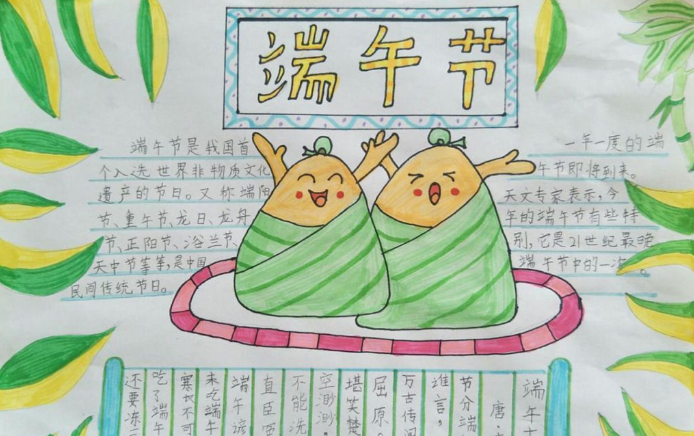 端午节
端午节是我国首
个入选世界非物质文化
遗产的节日。又称端阳
节、重午节、龙日、龙舟
节、正阳节、浴兰节、
天中节等等,是中国
民间传统节日。
一年一度的端
午节即将到来。
天文专家表示,今
年的端午节有些特
别,它是21世纪最晚
端午节中的一次。
端午
唐·
节分端
谁言,
万古传闻
屈原。
堪笑楚
空渺渺,
不能洗
直臣
端午谚
未吃端午
寒衣不可
吃了端午
还要冻